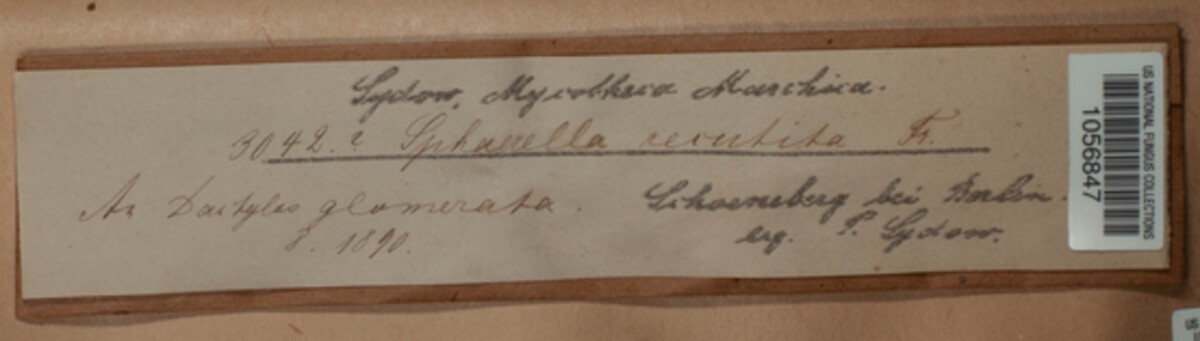 Sydow, Mycotheca Marchica.
3042. ? Sphaerella recutita Fr.
An Dactylis glomerata.
8. 1890.
Schoeneberg bei Berlin.
leg. P. Sydow.
US NATIONAL FUNGUS COLLECTIONS
1056847